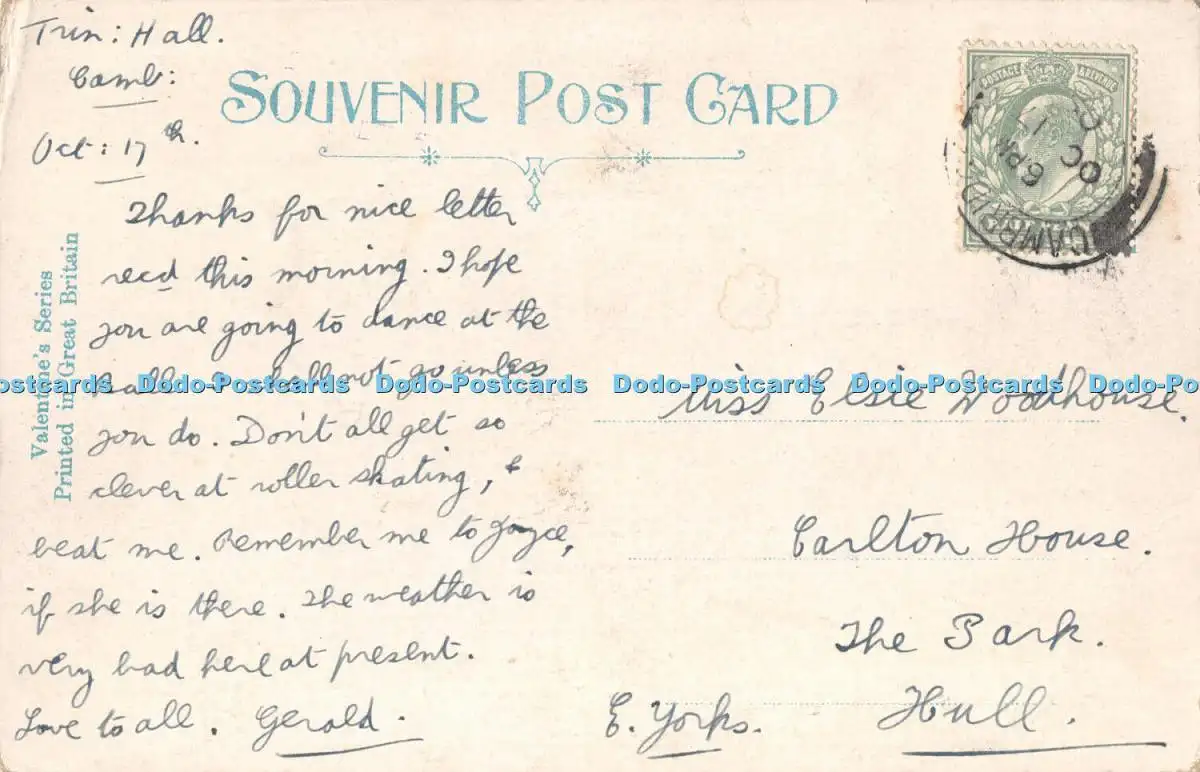 Trin: Hall.
Camb:
Oct: 17th.
SOUVENIR POST CARD
POSTAGE REVENUE
CAMBRID
6 PM
OC 17
Valentine's Series
Printed in Great Britain
Thanks for nice letter
recd this morning. I hope
you are going to dance at the
ball. I shall not go unless
you do. Don't all get so
clever at roller skating, &
beat me. Remember me to Joyce,
if she is there. The weather is
very bad here at present.
Love to all. Gerald.
Miss Elsie Woodhouse.
Carlton House.
The Park.
Hull.
E. Yorks.
Dodo-Postcards Dodo-Postcards Dodo-Postcards Dodo-Postcards Dodo-Postcards